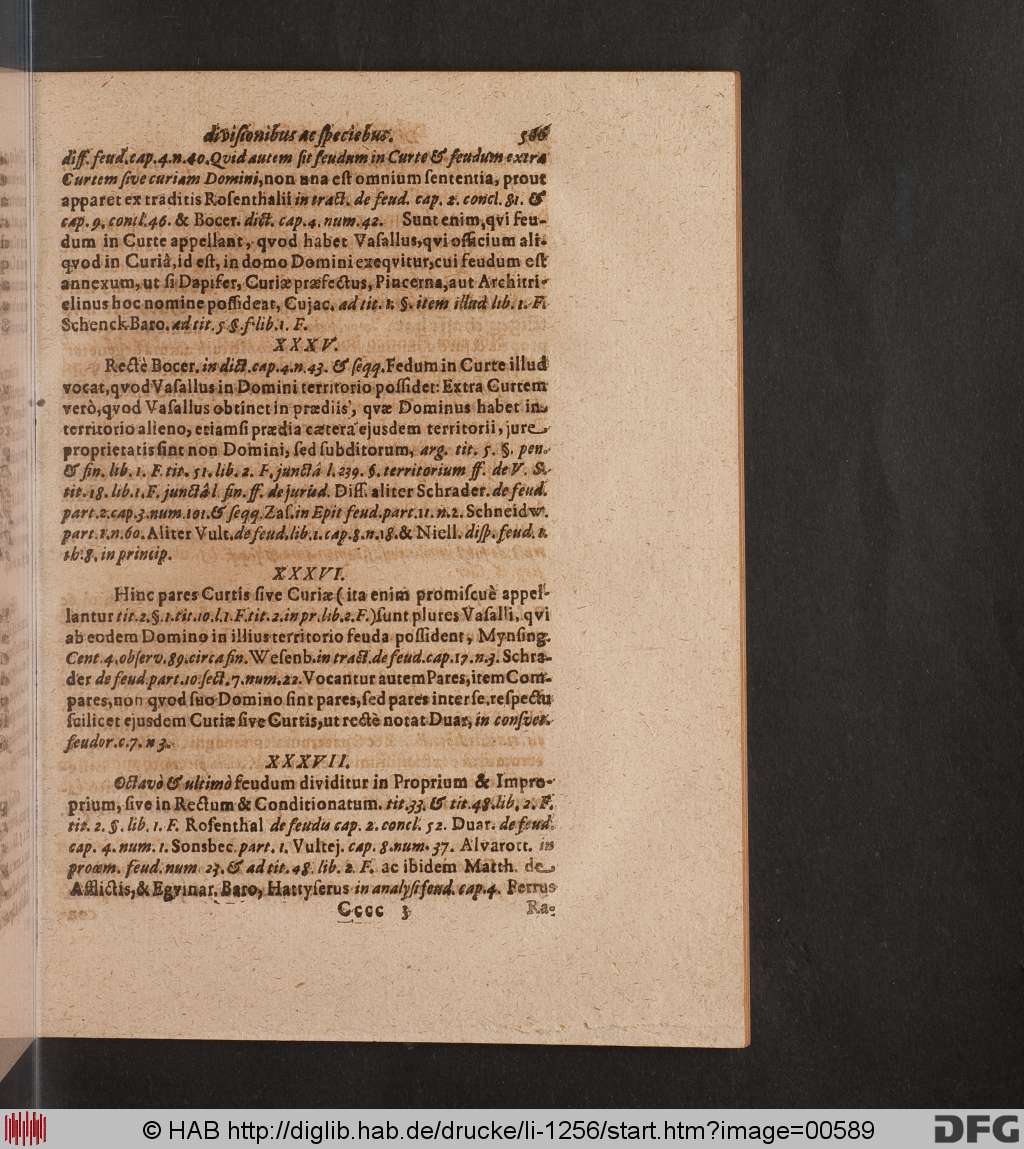 divisionibus ac speciebus. 566
diss. feud. cap. 4. n. 40. Quid autem sit feudum in Curte & feudum extra
Curtem sive curiam Domini, non una est omnium sententia, prout
apparet ex traditis Rosenthalii in tract. de feud. cap. 2. concl. 81. &
cap. 9. concl. 46. & Bocer. dict. cap. 4. num. 42. Sunt enim, qvi feu-
dum in Curte appellant, qvod habet Vasallus, qvi officium ali-
qvod in Curiâ, id est, in domo Domini exeqvitur, cui feudum est
annexum, ut si Dapifer, Curiæ præfectus, Pincerna, aut Architri-
clinus hoc nomine possideat, Cujac. ad tit. 1. §. item illud lib. 1. F.
Schenck Baro. ad tit. 5 §. f. lib. 1. F.
XXXV.
Rectè Bocer. in dict. cap. 4. n. 43. & seqq. Fedum in Curte illud
vocat, qvod Vasallus in Domini territorio possidet: Extra Curtem
verò, qvod Vasallus obtinet in prædiis, qvæ Dominus habet in
territorio alieno, etiamsi prædia cætera ejusdem territorii, jure
proprietatis sint non Domini, sed subditorum, arg. tit. 5. §. pen.
& fin. lib. 1. F. tit. 51. lib. 2. F. junctâ l. 239. §. territorium ff. de V. S.
tit. 18. lib. 1. F. junctâ l. fin. ff. de jurisd. Diss. aliter Schrader. de feud.
part. 2. cap. 3. num. 101. & seqq. Zas. in Epit feud. part. 11. n. 2. Schneidw.
part. 1. n. 60. Aliter Vult. de feud. lib. 1. cap. 8. n. 18. & Niell. disp. feud. 1.
th. 8. in princip.
XXXVI.
Hinc pares Curtis sive Curiæ (ita enim promiscuè appel-
lantur tit. 2. §. 1. tit. 10. l. 1. F. tit. 2. in pr. lib. 2. F.) sunt plures Vasalli, qvi
ab eodem Domino in illius territorio feuda possident, Mynsing.
Cent. 4. observ. 89. circa fin. Wesenb. in tract. de feud. cap. 17. n. 3. Schra-
der de feud. part. 10. sect. 7. num. 22. Vocantur autem Pares, item Com-
pares, non qvod suo Domino sint pares, sed pares inter se, respectu
scilicet ejusdem Curiæ sive Curtis, ut rectè notat Duar, in consvet.
feudor. c. 7. n 3.
XXXVII.
Octavò & ultimò feudum dividitur in Proprium & Impro-
prium, sive in Rectum & Conditionatum. tit. 33. & tit. 48. lib. 2. F.
tit. 2. §. lib. 1. F. Rosenthal de feudu cap. 2. concl. 52. Duar. de feud.
cap. 4. num. 1. Sonsbec. part. 1. Vultej. cap. 8. num. 37. Alvarott. in
proœm. feud. num 23. & ad tit. 48. lib. 2. F. ac ibidem Matth. de
Afflictis, & Egvinar. Baro, Hattyserus in analysi feud. cap. 4. Petrus
Cccc 3 Ra-
© HAB http://diglib.hab.de/drucke/li-1256/start.htm?image=00589
DFG